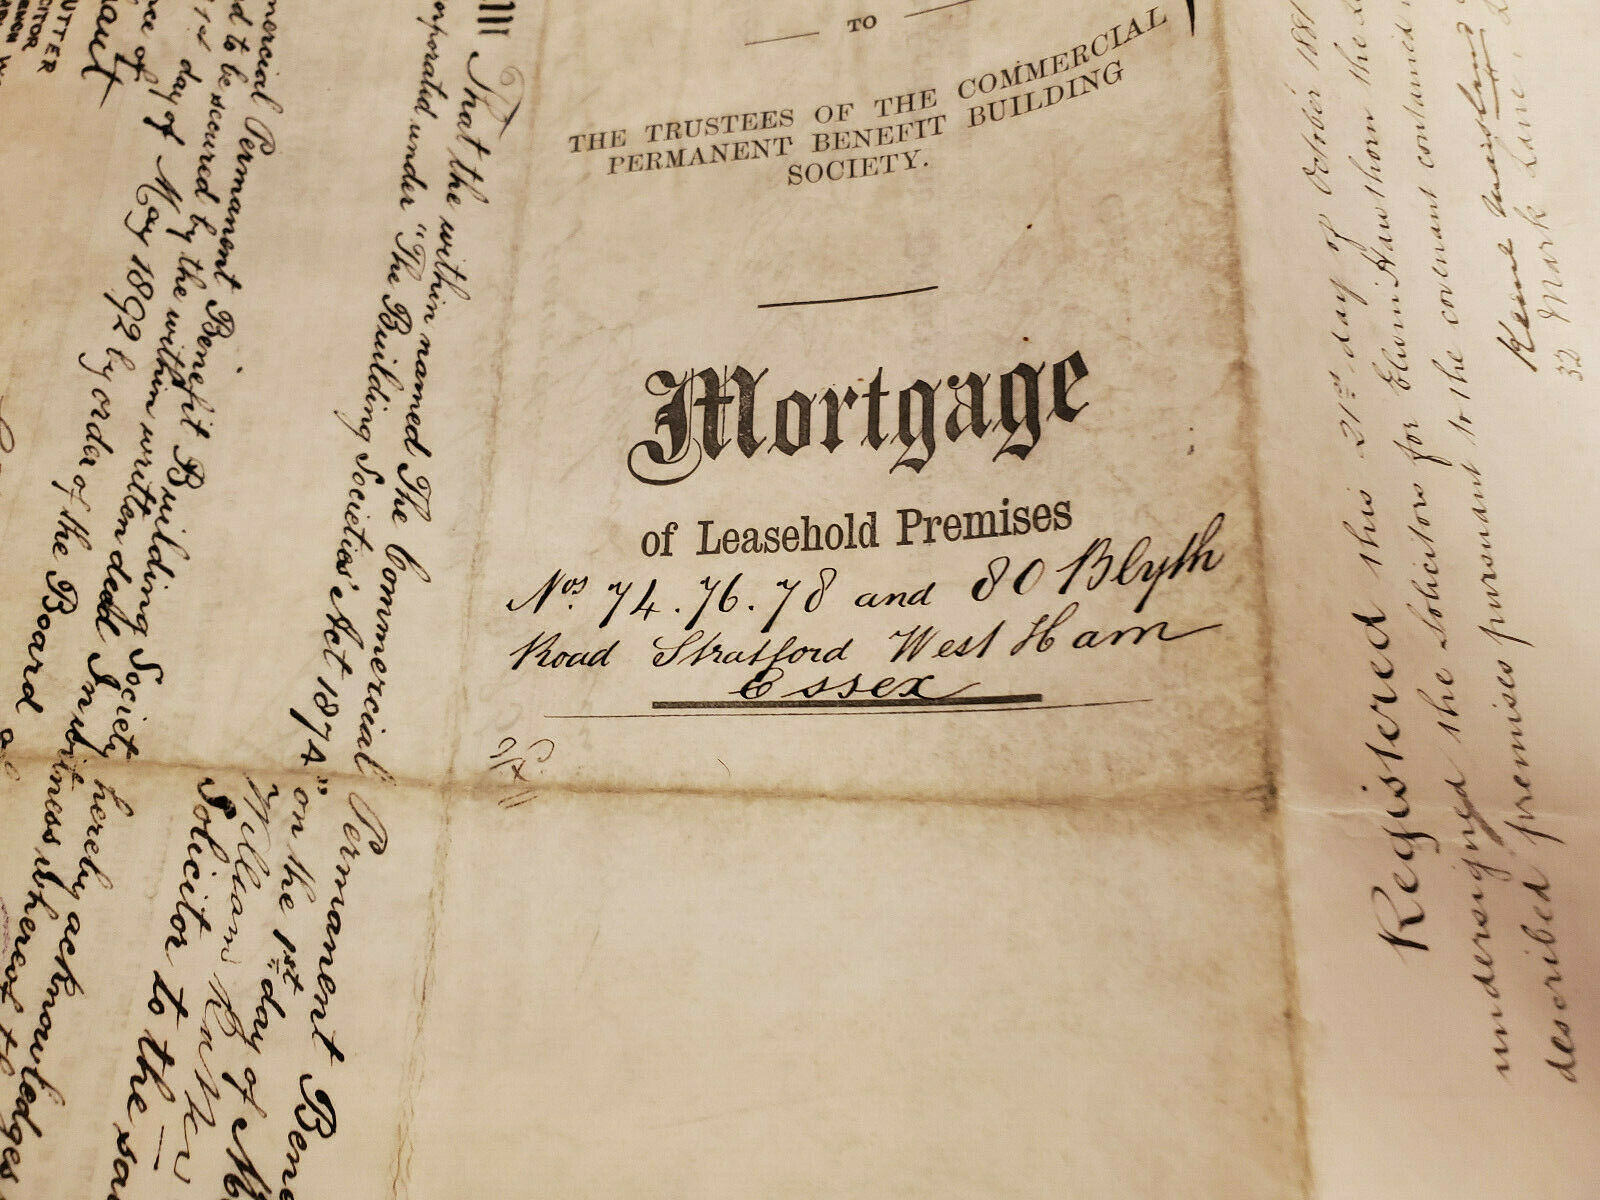 TO
THE TRUSTEES OF THE COMMERCIAL
PERMANENT BENEFIT BUILDING
SOCIETY.
Mortgage
of Leasehold Premises
Nos. 74. 76. 78 and 80 Blyth
Road Stratford West Ham
Essex
That the within named The Commercial Permanent Bene
orporated under "The Building Societies Act 1874" on the 1st day of M
William Rutter
Solicitor to the sa
mercial Permanent Benefit Building Society hereby acknowledges
d to be secured by the within written deed In witness whereof th
1st day of May 1892 by order of the Board
nce of
UTTER
CITOR
Registered this 21st day of October 1881
undersigned the Solicitors for Elwin Hawthorn the
described premises pursuant to the covenant contained
Keene
32 Mark Lane